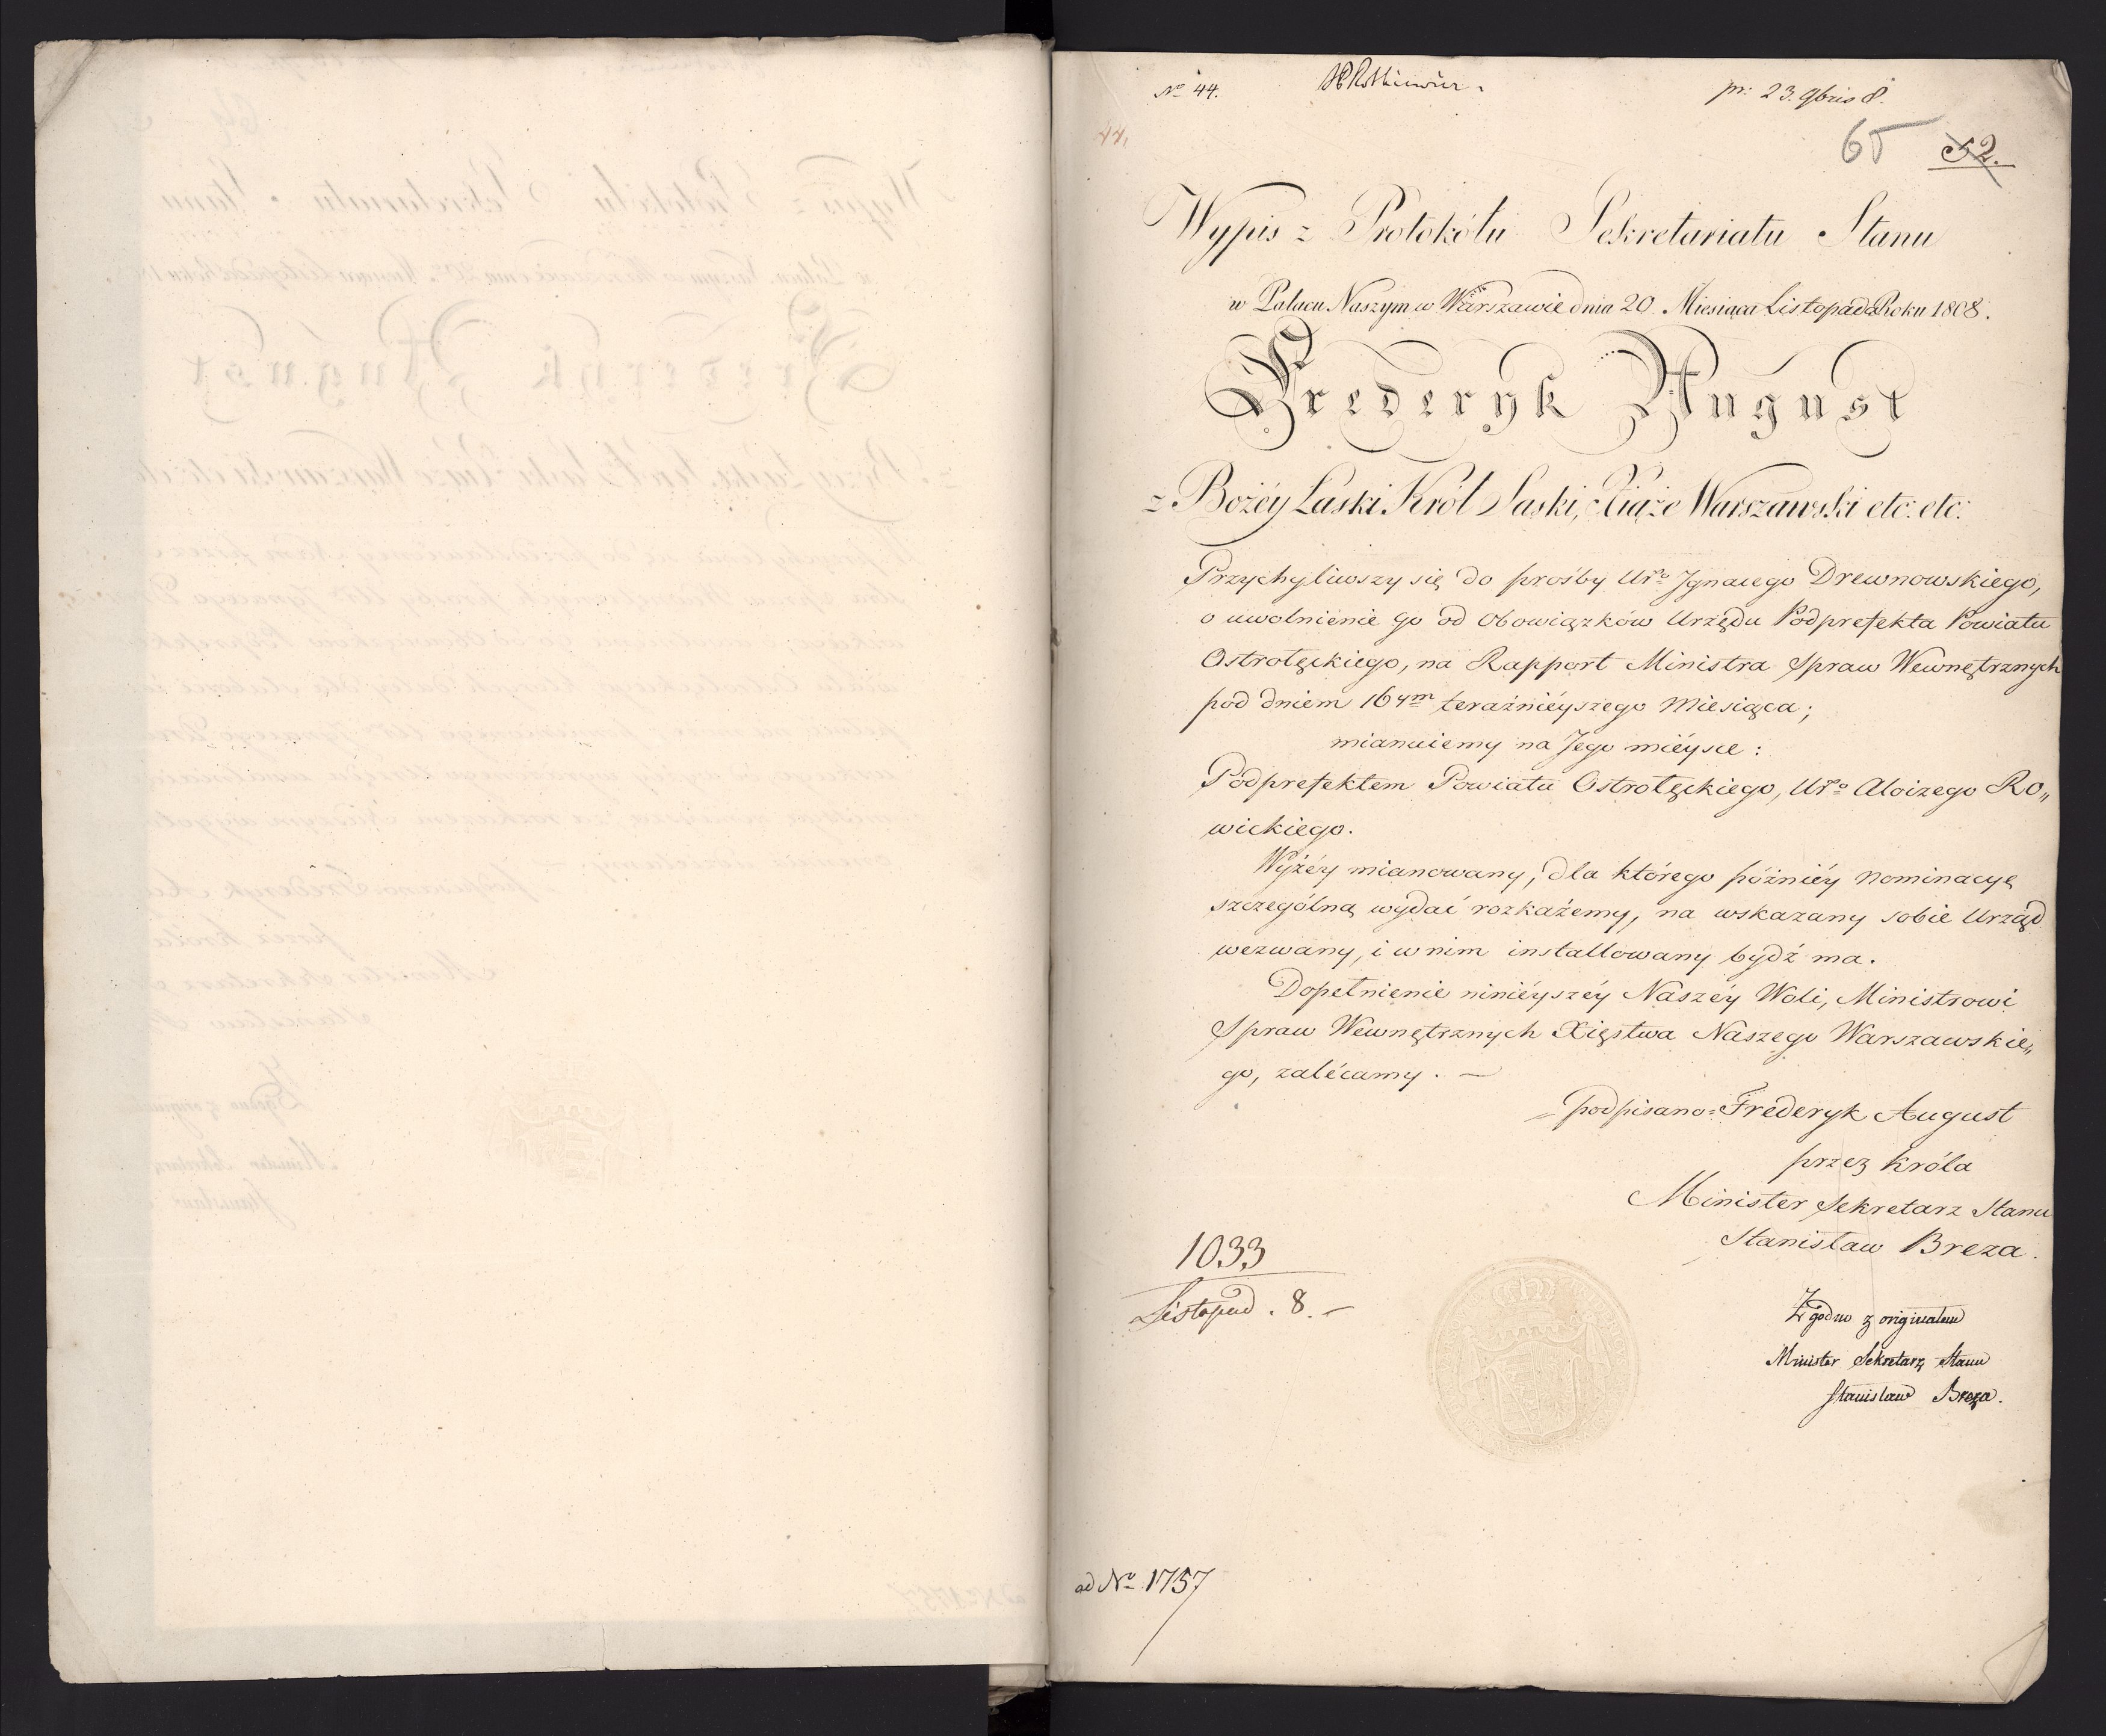 No 44.
pr: 23. 9bris 8.
44.
65 52.
Wypis z Protokółu Sekretariatu Stanu
w Pałacu Naszym w Warszawie dnia 20. Miesiąca Listopada Roku 1808.
Frederyk August
z Bożéy Łaski Król Saski, Xiąże Warszawski etc: etc:
Przychyliwszy się do prośby Uro Ignacego Drewnowskiego,
o uwolnienie go od Obowiązków Urzędu Podprefekta Powiatu
Ostrołęckiego, na Rapport Ministra Spraw Wewnętrznych
pod dniem 16ym teraźniéyszego Miesiąca;
mianuiemy na Jego miéysce:
Podprefektem Powiatu Ostrołęckiego, Uro Aloizego Ro„
wickiego.
Wyżéy mianowany, dla którego późniéy Nominacyę
szczególną wydać rozkażemy, na wskazany sobie Urząd
wezwany, i w nim installowany bydź ma.
Dopełnienie niniéyszéy Naszéy Woli, Ministrowi
Spraw Wewnętrznych Xięstwa Naszego Warszawskie„
go, zalécamy. —
podpisano = Frederyk August
przez Króla
Minister Sekretarz Stanu
Stanisław Breza.
1033
Listopad. 8. —
Zgodno z originałem
Minister Sekretarz Stanu
Stanisław Breza.
ad No 1757